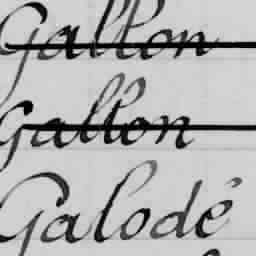 Gallon
Gallon
Galodé